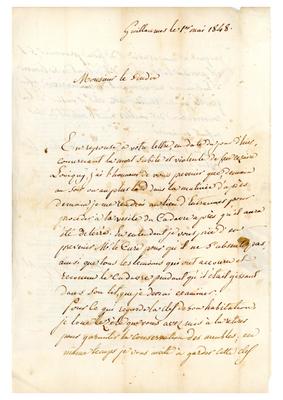 Guillaumes le 1er mai 1848.
Monsieur le
En reponse à votre lettre, en date du jour d'hier,
concernant la mort subite et violente de
j'ai l'honneur de vous prevenir que, demain
au soir ou au plus tard dans la matinée d'après
demain, je me rendrai au
procéder à la visite du Cadavre après qu'il aura
été déterré. En attendant je vous prie d'en
prevenir Mr le Curé pour qu'il ne s'absente pas
ainsi que tous les temoins qui ont accouru et
reconnu le Cadavre pendant qu'il était gissant
dans son lit, que je devrai examiner.
Pour ce que regarde la clef de son habitation
je loue le zèle que vous avez mis à la retirer
pour garantir la conservation des meubles, en
même temps je vous invite à garder cette clef